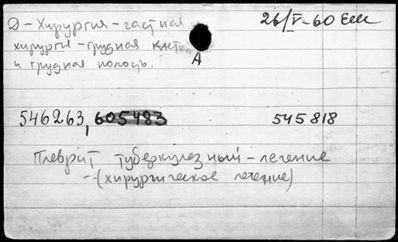 Д - Хирургия - частная 26/V-60 Еш
хирургия - грудная клетка
и грудная полость. А
546263, 605483 545818
Плеврит туберкулезный - лечение
-- (хирургическое лечение)